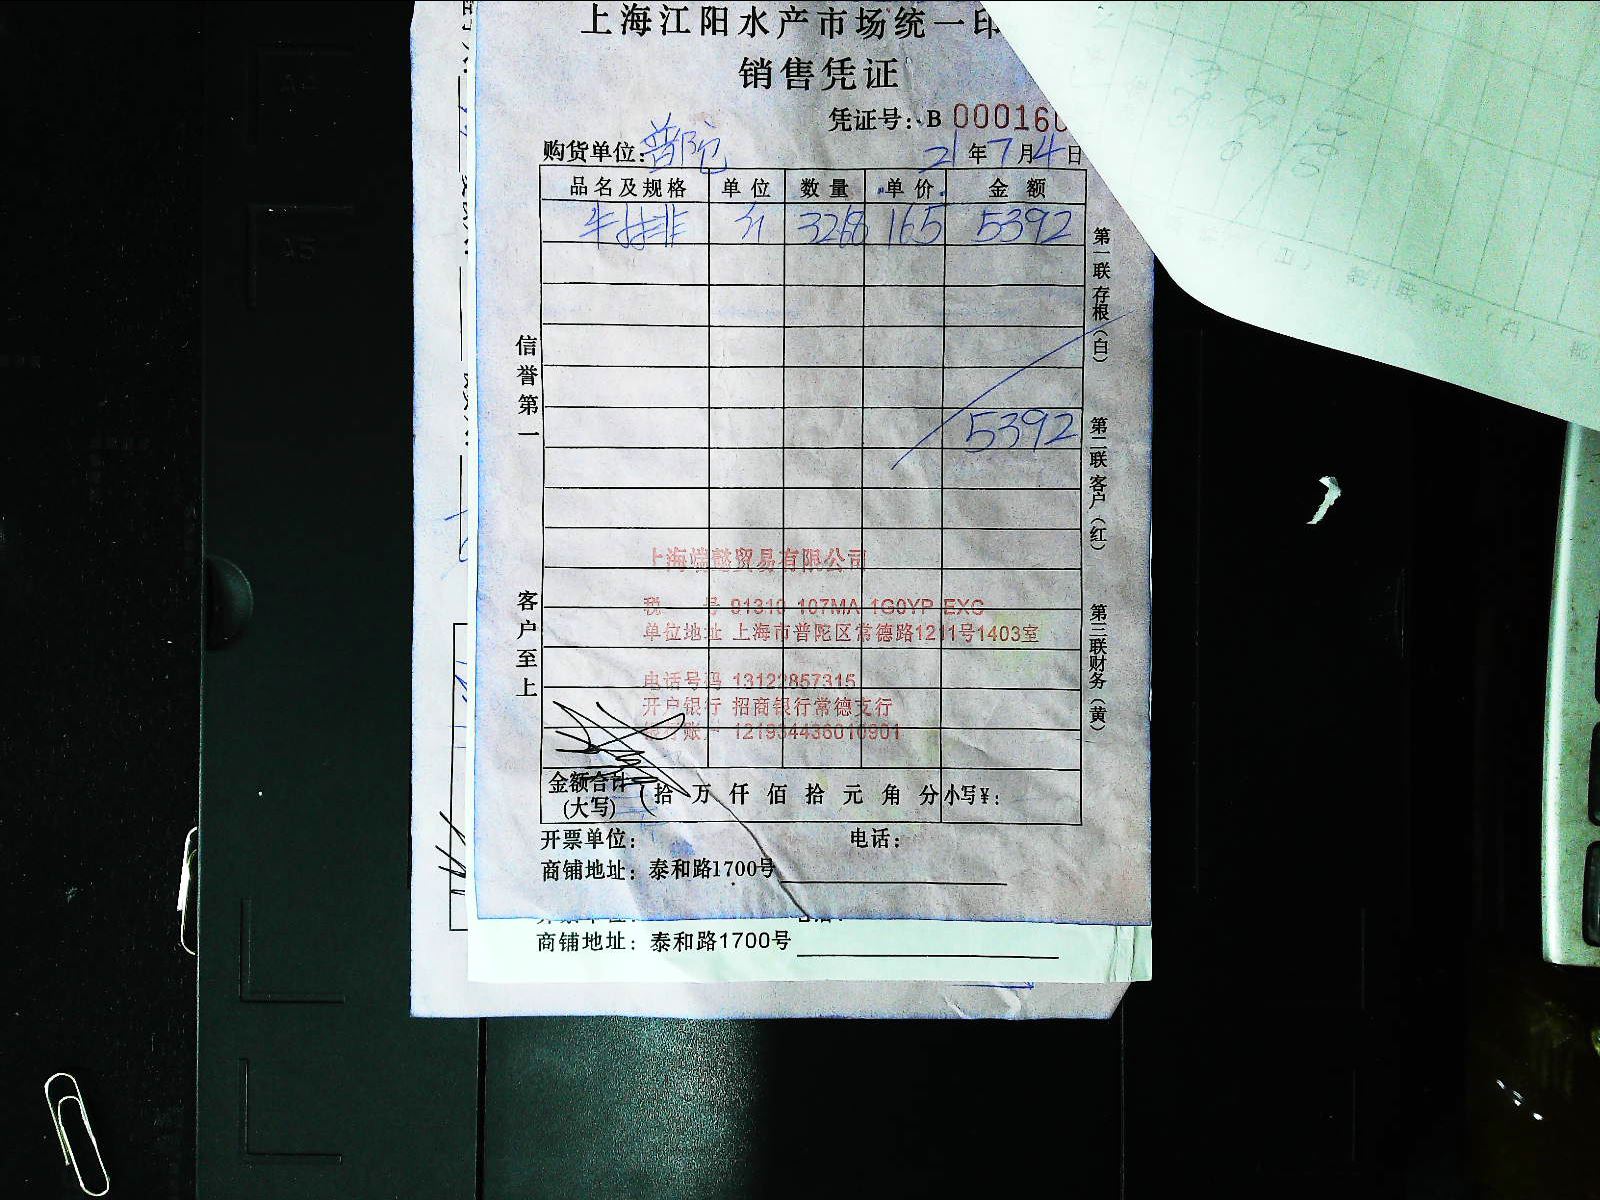 上海江阳水产市场统一印
销售凭证
凭证号: B 000160
购货单位: 普陀 21年7月4日
品名及规格 单位 数量 单价 金额
牛排 斤 3268 165 5392
5392
信誉第一
客户至上
第一联 存根(白)
第二联 客户(红)
第三联财务(黄)
上海端懿贸易有限公司
税 号 91310 107MA 1G0YP EXG
单位地址 上海市普陀区常德路1211号1403室
电话号码 13122857315
开户银行 招商银行常德支行
银行账户 121934436010901
金额合计(大写) 拾 万 仟 佰 拾 元 角 分 小写¥:
开票单位: 电话:
商铺地址: 泰和路1700号
商铺地址: 泰和路1700号